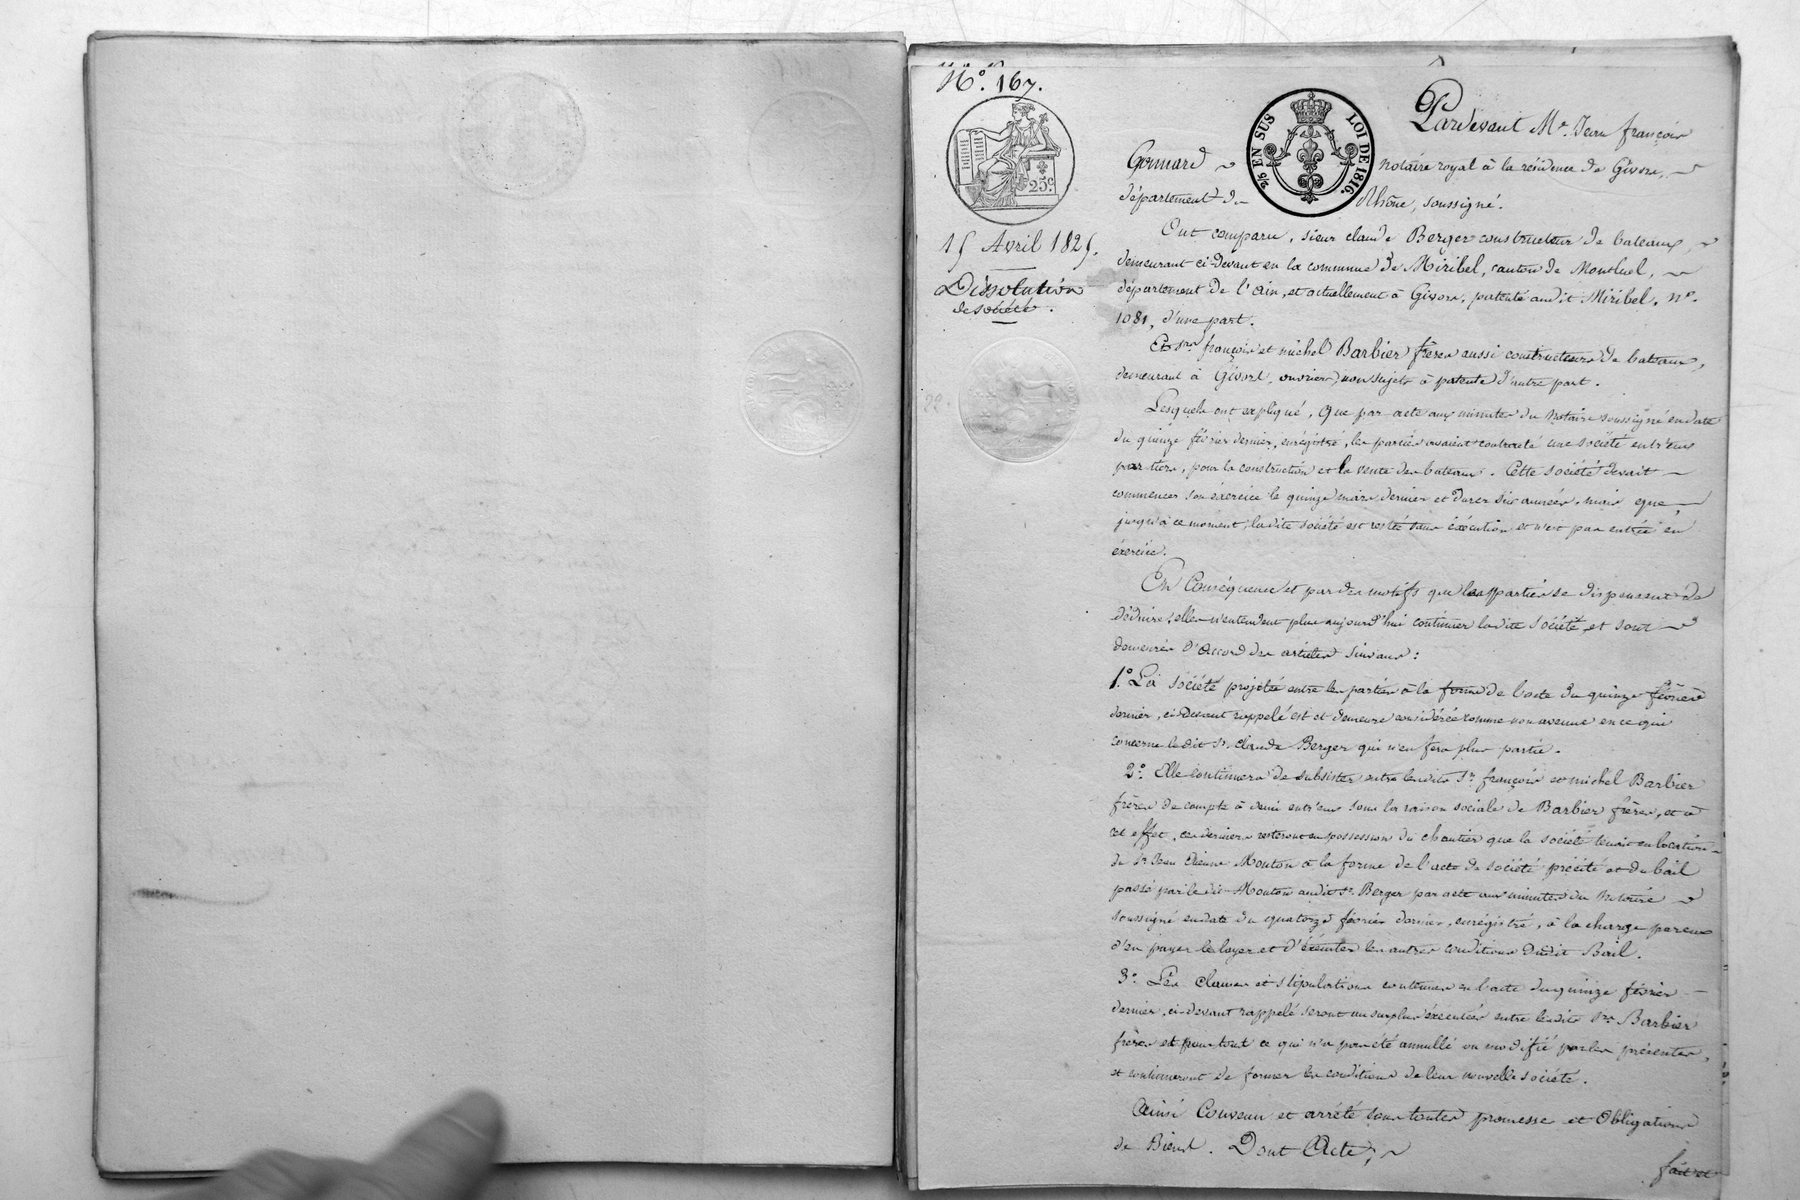 N.º 167.
25c
15 Avril 1825.
Dissolution
de société.
2/5 EN SUS LOI DE 1816.
Pardevant Me. Jean françois
Gonnard notaire royal à la résidence de Givors,
département du Rhône, soussigné.
Ont comparu, sieur claude Berger constructeur de bateaux,
demeurant ci-devant en la commune de Miribel, canton de Montluel,
département de l'ain, et actuellement à Givors, patenté audit Miribel, nº.
1081, d'une part.
Et srs françois et michel Barbier frères aussi constructeurs de bateaux,
demeurant à Givors, ouvriers non sujets à patente d'autre part.
Lesquels ont expliqué, Que par acte aux minutes du notaire soussigné en date
du quinze février dernier, enrégistré, les parties avaient contracté une société entr'eux
par tiers, pour la construction et la vente des bateaux. Cette société devait
commencer son exercice le quinze mars dernier et durer six années, mais que,
jusqu'à ce moment, ladite société est restée sans éxécution et n'est pas entrée en
éxercice.
En Conséquence et par des motifs que les parties se dispensent de
déduire, elles n'entendent plus aujourd'hui continuer ladite société, et sont
demeurées d'accord des articles suivans :
1.º La société projetée entre les parties à la forme de l'acte du quinze février
dernier, ci-devant rappelé est et demeure considérée comme non avenue en ce qui
concerne ledit sr. Claude Berger qui n'en fera plus partie.
2.º Elle continuera de subsister entre lesdits srs françois et michel Barbier
frères de compte à demi entr'eux sous la raison sociale de Barbier frères, et à
cet effet, ces derniers resteront en possession du chantier que la société tenait en location
du sr Jean Etienne Mouton à la forme de l'acte de société précité et du bail
passé par ledit Mouton audit sr. Berger par acte aux minutes du Notaire
soussigné en date du quatorze février dernier, enrégistré, à la charge par eux
d'en payer le loyer et d'éxécuter les autres conditions dudit Bail.
3.º Les clauses et stipulations contenues en l'acte du quinze février
dernier, ci-devant rappelé seront au surplus éxécutées entre lesdits srs Barbier
frères et pour tout ce qui n'a pas été annullé ou modifié par les présentes,
et continueront de former les conditions de leur nouvelle société.
Ainsi Convenu et arrêté sous toutes promesse et Obligations
de Biens. Dont Acte,
fait et